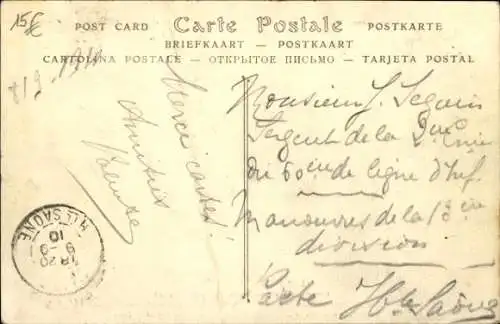 15€
POST CARD Carte Postale POSTKARTE
BRIEFKAART — POSTKAART
CARTOLINA POSTALE — ОТКРЫТОЕ ПИСЬМО — TARJETA POSTAL
Merci cartes!
Amitiés
Monsieur J. Seguin
Sergent de la 2me Cnie
du 60ème de ligne d'Inf
Manœuvres de la 13ème
division
Hte Saône
Hte SAONE